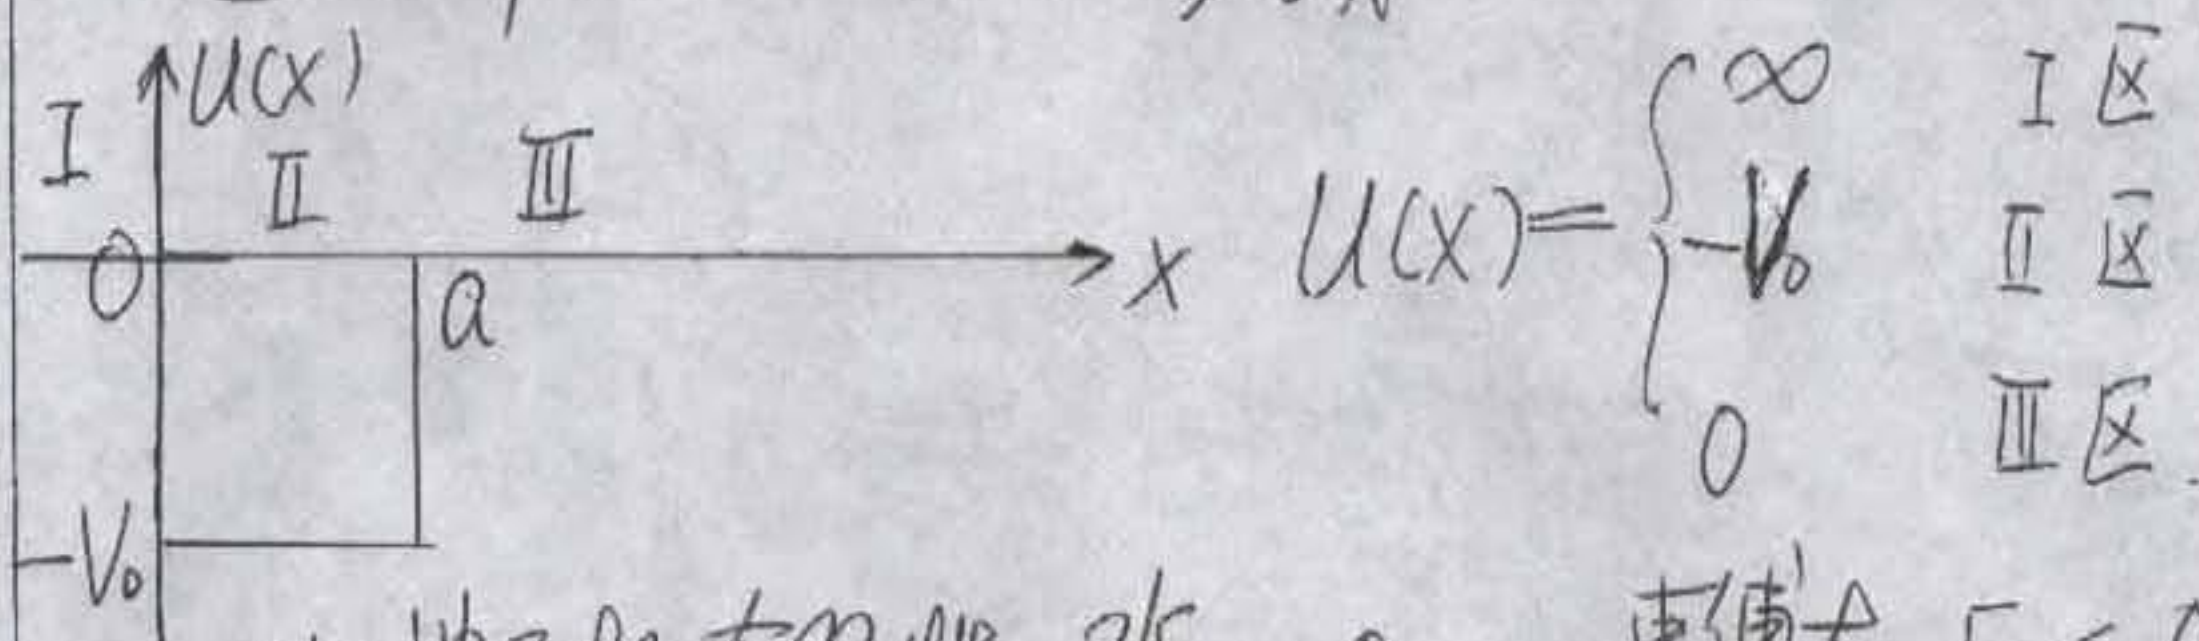 U(x)
I II III
O a x
-V₀
U(x)= { ∞ I 区
-V₀ II 区
0 III 区